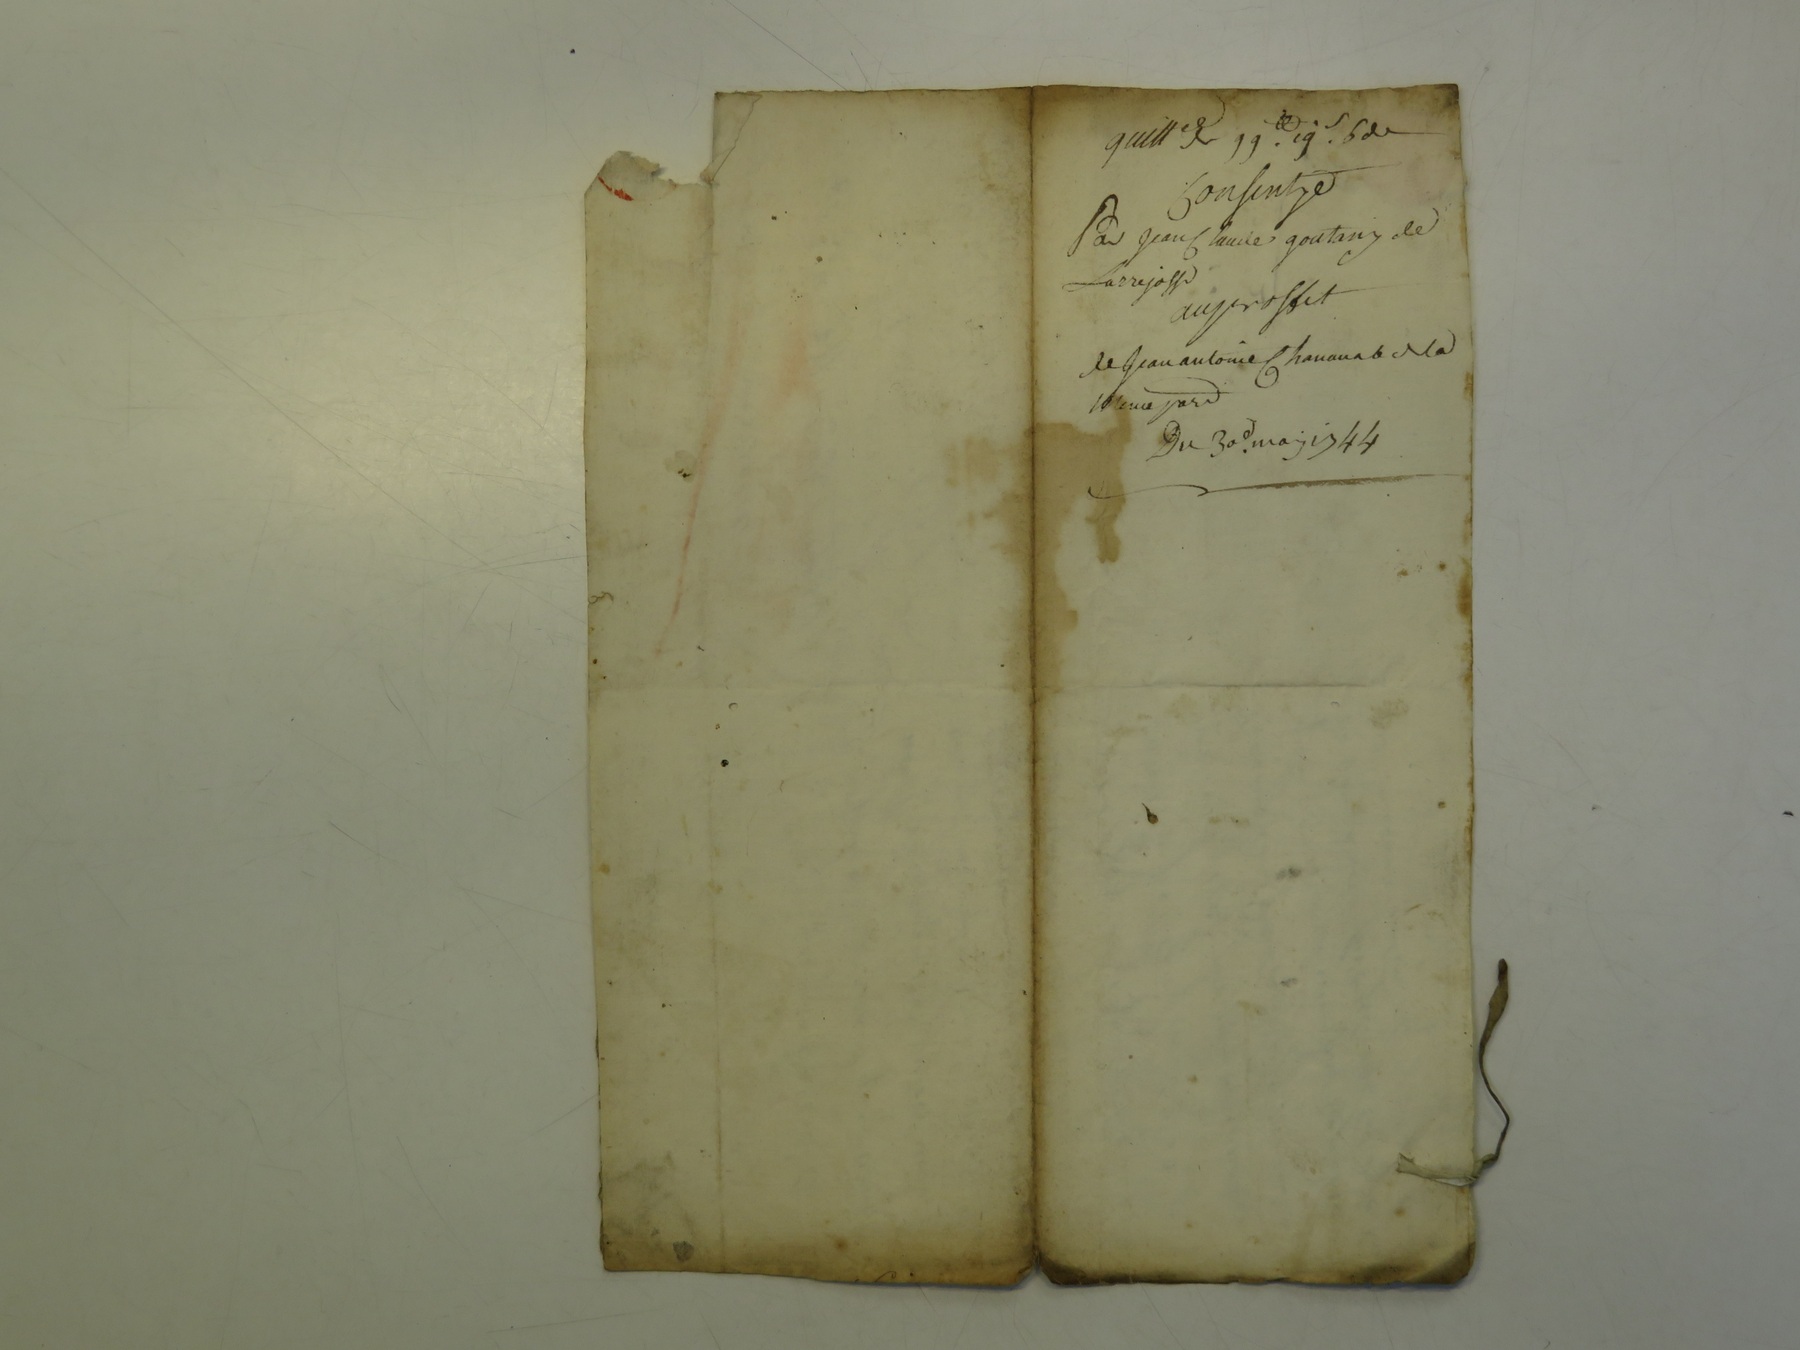 quitt.ce de 99.lt 19.s 6 de
Consentye
Par Jean Claude goutry de
Larrejosse
auproffit
de Jean antoine Chavana de la
même parr
Du 30.e may 1744